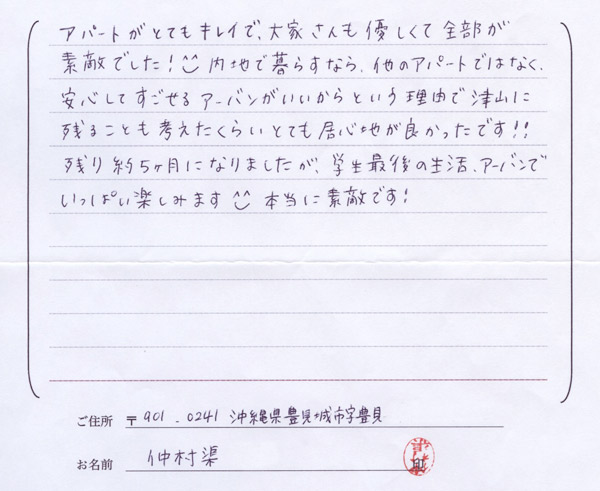 アパートがとてもキレイで、大家さんも優しくて全部が
素敵でした!^^ 内地で暮らすなら、他のアパートではなく、
安心してすごせるアーバンがいいからという理由で津山に
残ることも考えたくらいとても居心地が良かったです!!
残り約5ヶ月になりましたが、学生最後の生活、アーバンで
いっぱい楽しみます^^ 本当に素敵です!
ご住所 〒901-0241 沖縄県豊見城市字豊見
お名前 仲村渠